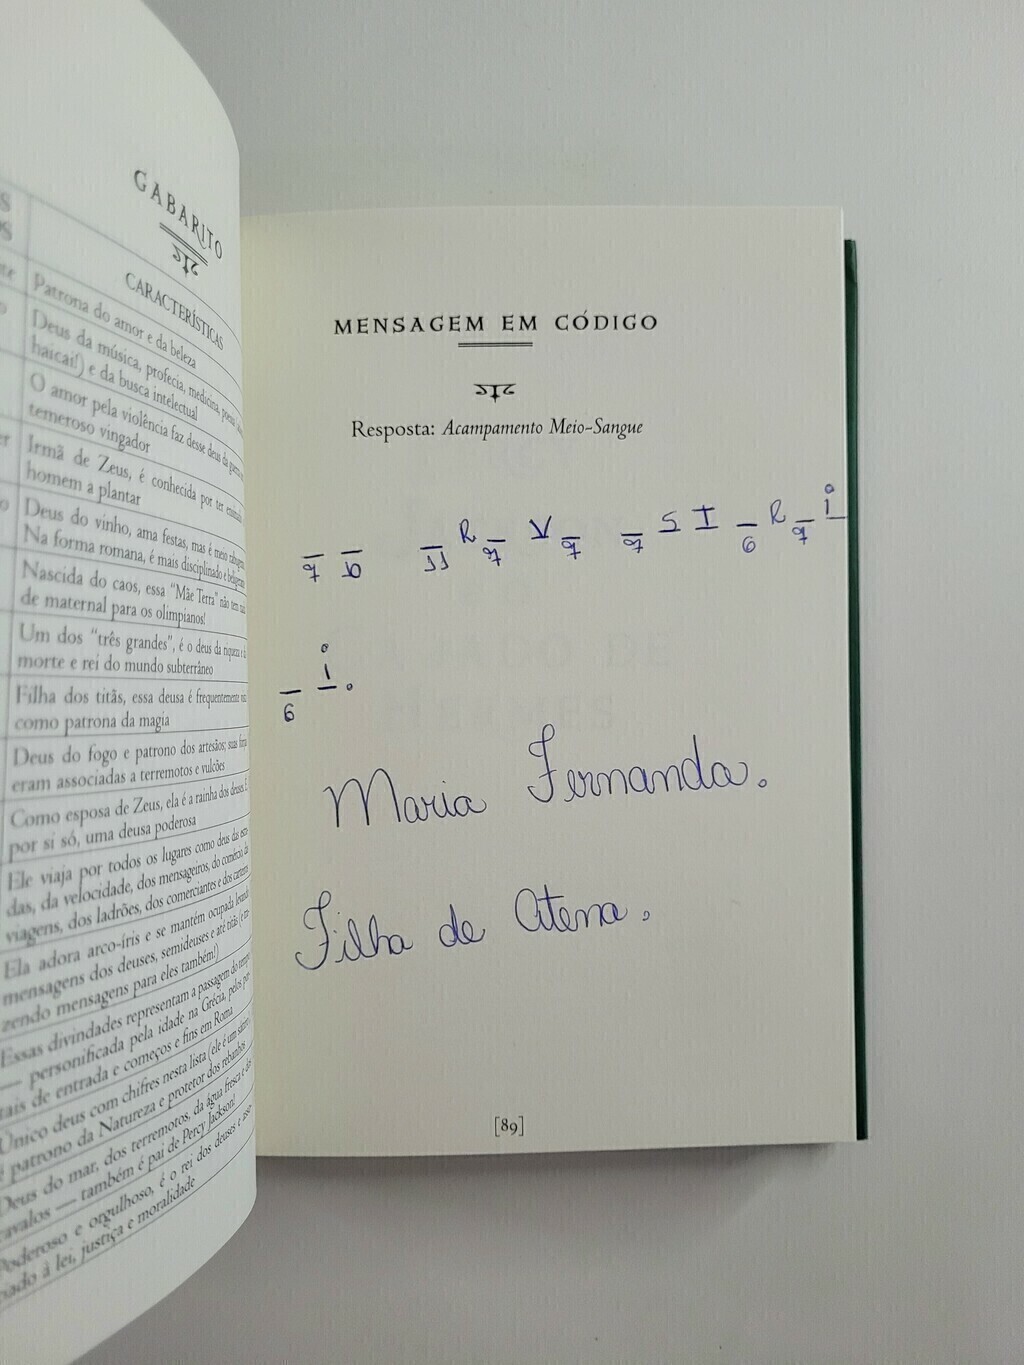 GABARITO
CARACTERÍSTICAS
Patrona do amor e da beleza
Deus da música, profecia, medicina, poesia
haicai!) e da busca intelectual
O amor pela violência faz desse deus da guerra
temeroso vingador
Irmã de Zeus, é conhecida por ter ensinado
homem a plantar
Deus do vinho, ama festas, mas é meio rabugento
Na forma romana, é mais disciplinado e
Nascida do caos, essa “Mãe Terra” não tem nada
de maternal para os olimpianos!
Um dos “três grandes”, é o deus da riqueza e da
morte e rei do mundo subterrâneo
Filha dos titãs, essa deusa é frequentemente
como patrona da magia
Deus do fogo e patrono dos artesãos; suas
eram associadas a terremotos e vulcões
Como esposa de Zeus, ela é a rainha dos deuses. E,
por si só, uma deusa poderosa
Ele viaja por todos os lugares como deus das estra-
das, da velocidade, dos mensageiros, do comércio, da
viagens, dos ladrões, dos comerciantes e dos carteiros
Ela adora arco-íris e se mantém ocupada levando
mensagens dos deuses, semideuses e até titãs (e
zendo mensagens para eles também!)
Essas divindades representam a passagem do tempo
— personificada pela idade na Grécia, pelos por-
tais de entrada e começos e fins em Roma
Único deus com chifres nesta lista (ele é um sátiro),
é patrono da Natureza e protetor dos rebanhos
Deus do mar, dos terremotos, da água fresca e dos
cavalos — também é pai de Percy Jackson!
Poderoso e orgulhoso, é o rei dos deuses e asso-
ciado à lei, justiça e moralidade
MENSAGEM EM CÓDIGO
Resposta: Acampamento Meio-Sangue
_ _ _ R _ V _ _ S I _ R _ i
7 10 11 7 7 7 6 7
_ i.
6
Maria Fernanda.
Filha de Atena.
[89]